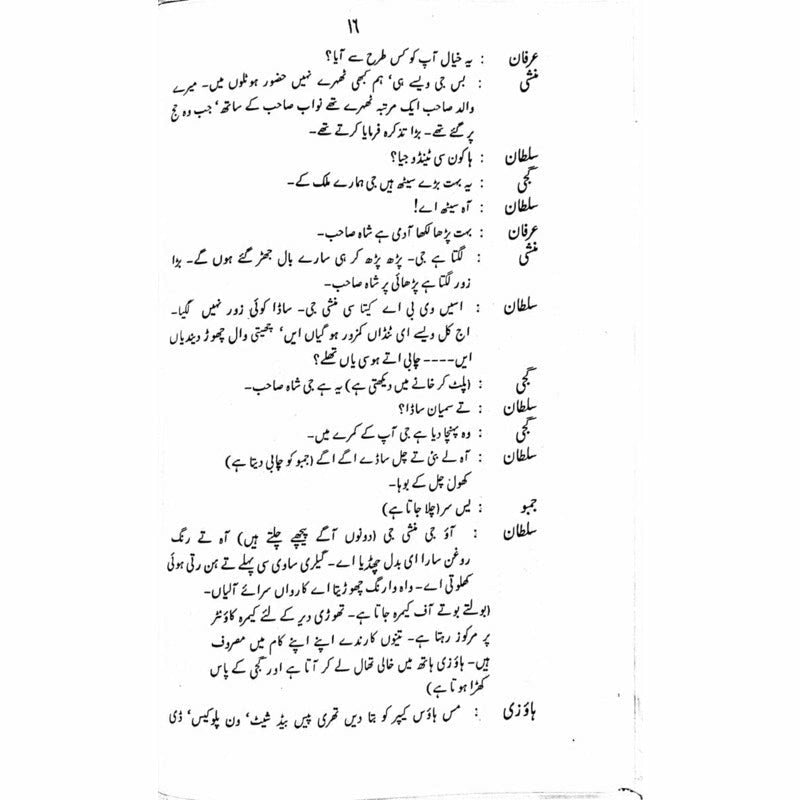 ۱۶
عرفان : یہ خیال آپ کو کس طرح سے آیا؟
منشی : بس جی ویسے ہی، ہم کبھی ٹھہرے نہیں حضور ہوٹلوں میں۔ میرے
والد صاحب ایک مرتبہ ٹھہرے تھے نواب صاحب کے ساتھ، جب وہ حج
پر گئے تھے۔ بڑا تذکرہ فرمایا کرتے تھے۔
سلطان : ہا کون سی ٹینڈو جیا؟
گجی : یہ بہت بڑے سیٹھ ہیں جی ہمارے ملک کے۔
سلطان : آہ سیٹھ اے!
عرفان : بہت پڑھا لکھا آدی ہے شاہ صاحب۔
منشی : لگتا ہے جی۔ پڑھ پڑھ کر ہی سارے بال جھڑ گئے ہوں گے۔ بڑا
زور لگتا ہے پڑھائی پر شاہ صاحب۔
سلطان : اسیں وی بی اے کیتا سی منشی جی۔ ساڈا کوئی زور نہیں لگیا۔
اج کل ویسے ای ٹنڈاں کمزور ہو گیاں ایں، چھیتی وال چھوڑ دیندیاں
ایں۔۔۔۔ چابی اتے ہوسی یاں تھلے؟
گجی : (پلٹ کر خانے میں دیکھتی ہے) یہ ہے جی شاہ صاحب۔
سلطان : تے سمیان ساڈا؟
گجی : وہ پہنچا دیا ہے جی آپ کے کمرے میں۔
سلطان : آہ لے بنی تے چل ساڈے اگے اگے (جمبو کو چابی دیتا ہے)
کھول چل کے بوہا۔
جمبو : یس سر (چلا جاتا ہے)
سلطان : آؤ جی منشی جی (دونوں آگے پیچھے چلتے ہیں) آہ تے رنگ
روغن سارا ای بدل چھڈیا اے۔ گیلری ساوی سی پہلے تے ہن رتی ہوئی
کھلوتی اے۔ واہ وا رنگ چھوڑیتا اے کارواں سرائے آلیاں۔
(بولتے بولتے آف کیمرہ جاتا ہے۔ تھوڑی دیر کے لئے کیمرہ کاؤنٹر
پر مرکوز رہتا ہے۔ تینوں کارندے اپنے اپنے کام میں مصروف
ہیں۔ ہاؤزی ہاتھ میں خالی تھال لے کر آتا ہے اور گجی کے پاس
کھڑا ہوتا ہے)
ہاؤزی : مس ہاؤس کیپر کو بتا دیں تھری پیس بیڈ شیٹ، ون پلوکیس، ڈی